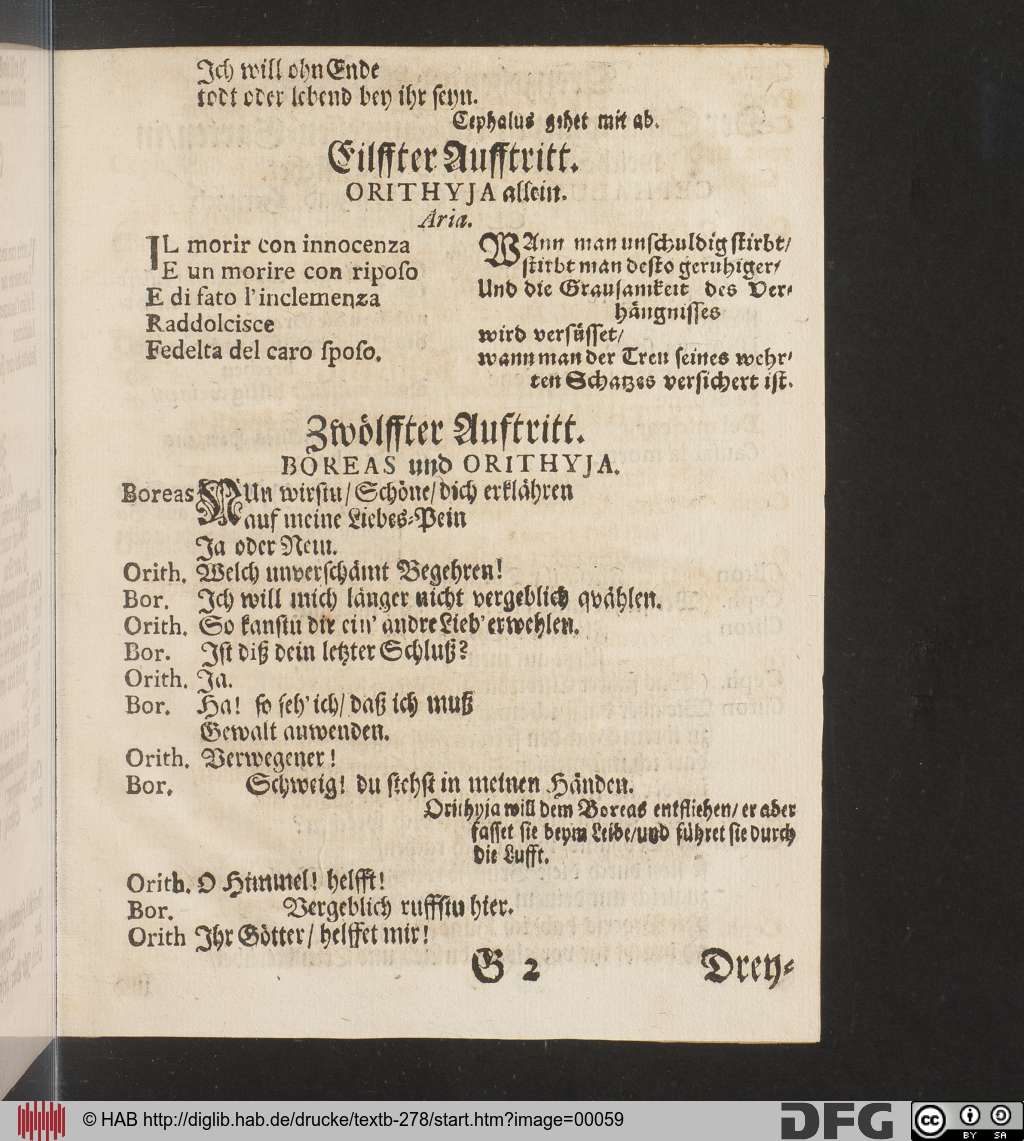 Ich will ohn Ende
todt oder lebend bey ihr seyn.
Cephalus gehet mit ab.
Eilffter Aufftritt.
ORITHYJA allein.
Aria.
IL morir con innocenza
E un morire con ripoſo
E di fato l'inclemenza
Raddolcisce
Fedelta del caro ſpoſo.
WAnn man unschuldig stirbt/
stirbt man desto geruhiger/
Und die Grausamkeit des Ver-
hängnisses
wird versüsset/
wann man der Treu seines wehr-
ten Schatzes versichert ist.
Zwölffter Auftritt.
BOREAS und ORITHYJA.
Boreas NUn wirstu/ Schöne/ dich erklähren
auf meine Liebes-Pein
Ja oder Nein.
Orith. Welch unverschämt Begehren!
Bor. Ich will mich länger nicht vergeblich qvählen.
Orith. So kanstu dir ein' andre Lieb' erwehlen.
Bor. Ist diß dein letzter Schluß?
Orith. Ja.
Bor. Ha! so seh' ich/ daß ich muß
Gewalt anwenden.
Orith. Verwegener!
Bor. Schweig! du stehst in meinen Händen.
Orithyja will dem Boreas entfliehen/ er aber
fasset sie beym Leibe/ und führet sie durch
die Lufft.
Orith. O Himmel! helfft!
Bor. Vergeblich ruffstu hier.
Orith Ihr Götter/ helffet mir!
G 2 Drey-
© HAB http://diglib.hab.de/drucke/textb-278/start.htm?image=00059
DFG
cc BY SA